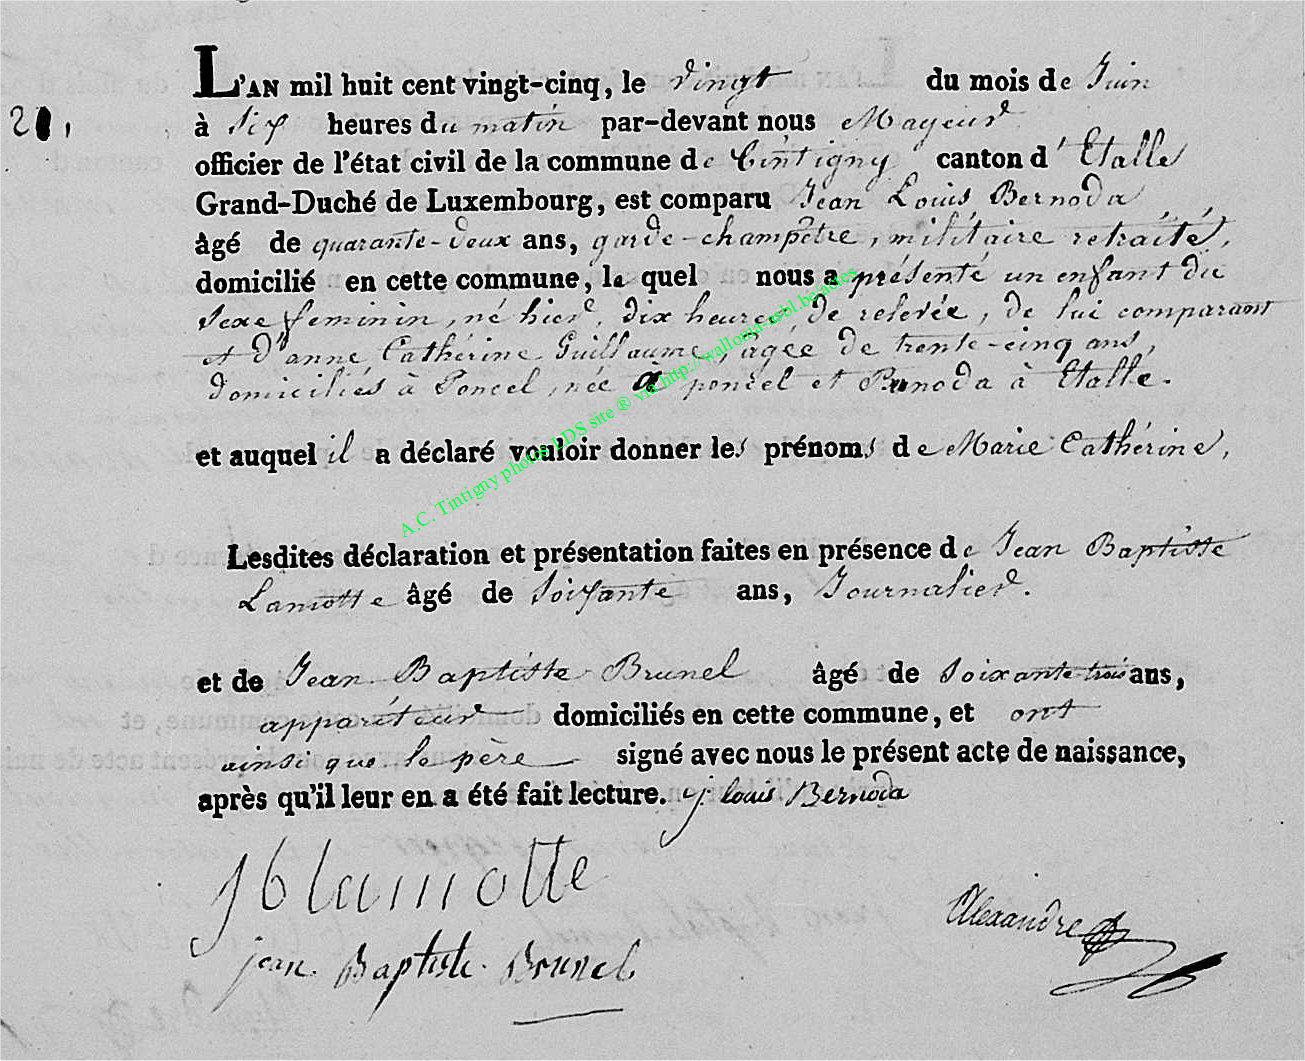 L'AN mil huit cent vingt-cinq, le vingt du mois de Juin
à six heures du matin par-devant nous Mayeur
officier de l'état civil de la commune de Tintigny canton d'Etalle
Grand-Duché de Luxembourg, est comparu Jean Louis Bernoda
âgé de quarante-deux ans, garde-champêtre, militaire retraité,
domicilié en cette commune, le quel nous a présenté un enfant du
sexe feminin, né hier, dix heures de relevée, de lui comparant
et d'anne Cathérine Guillaume, âgée de trente-cinq ans,
domiciliés à Poncel, née à poncel et Bernoda à Etalle.
et auquel il a déclaré vouloir donner les prénoms de Marie Cathérine,
Lesdites déclaration et présentation faites en présence de Jean Baptiste
Lamotte âgé de soixante ans, Journalier.
et de Jean Baptiste Brunel âgé de soixante-trois ans,
appariteur domiciliés en cette commune, et ont
ainsi que le père signé avec nous le présent acte de naissance,
après qu'il leur en a été fait lecture. j louis Bernoda
jb lamotte
Alexandre
jean Baptiste Brunel
A.C. Tintigny photos LDS site ® via http://wallonia-asbl.be/actes